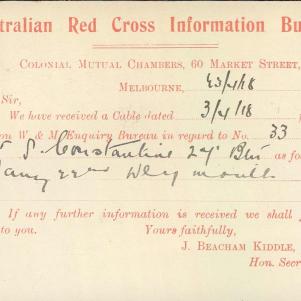 tralian Red Cross Information Bu
Colonial Mutual Chambers, 60 Market Street,
Melbourne, 23/4/18
Sir,
We have received a Cable dated 3/4/18
on W & M Enquiry Bureau in regard to No. 33
S. Constantine 24th Btn as fo
22nd Weymouth
If any further information is received we shall f
to you. Yours faithfully,
J. Beacham Kiddle,
Hon. Secr